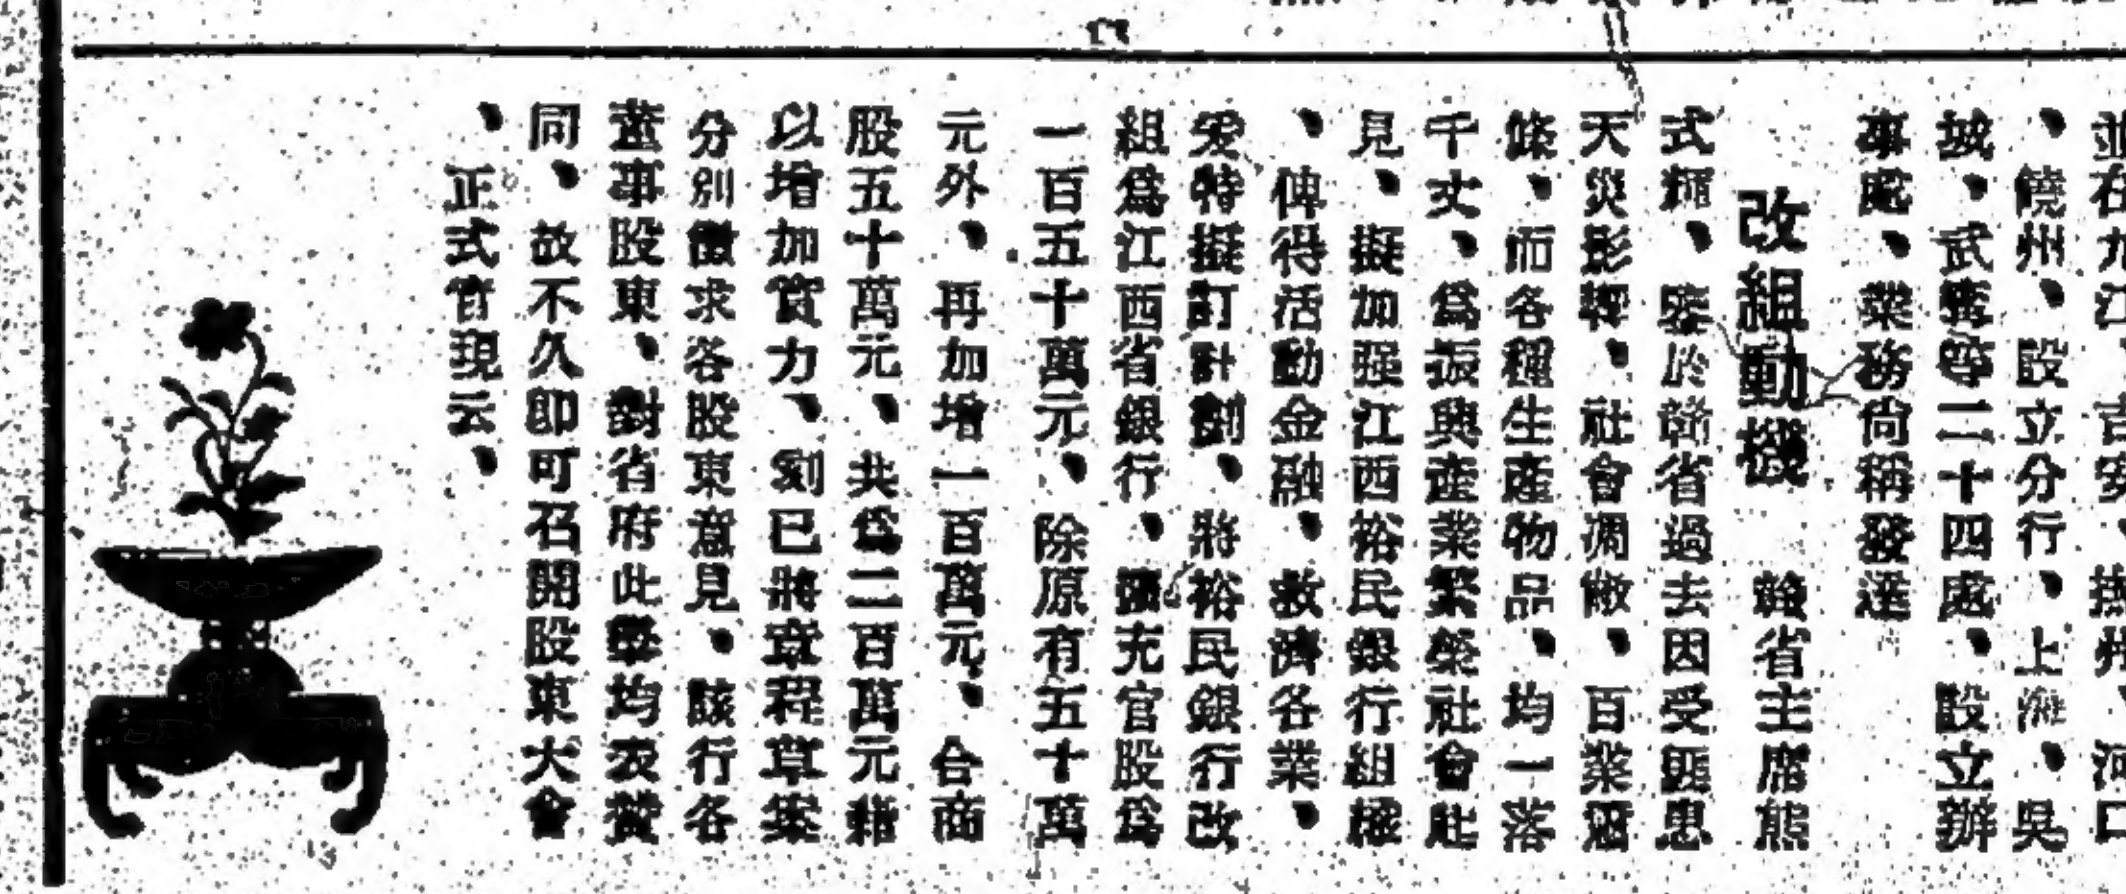 並在九江、吉安、撫州、河口
、饒州、設立分行、上海、吳
城、武寧等二十四處、設立辦
事處、業務尙稱發達
改組動機　贛省主席熊
式輝、鑒於贛省過去因受匪患
天災影響、社會凋敝、百業
條、而各種生產物品、均一落
千丈、爲振興產業繁榮社會起
見、擬加强江西裕民銀行組織
、俾得活動金融、救濟各業、
爰特擬訂計劃、將裕民銀行改
組爲江西省銀行、擴充官股爲
一百五十萬元、除原有五十萬
元外、再加增一百萬元、合商
股五十萬元、共爲二百萬元藉
以增加實力、刻已將章程草案
分別徵求各股東意見、該行各
董事股東、對省府此舉均表贊
同、故不久卽可召開股東大會
、正式實現云、